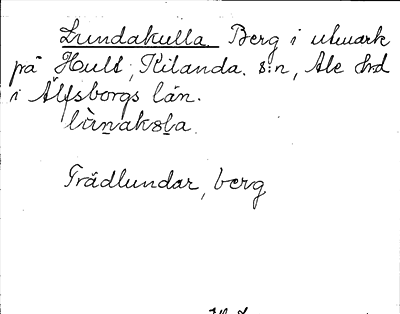 Lundakulla Berg i utmark
på Hult, Kilanda. s:n, Ale hd
i Älfsborgs län.
Trädlundar, berg